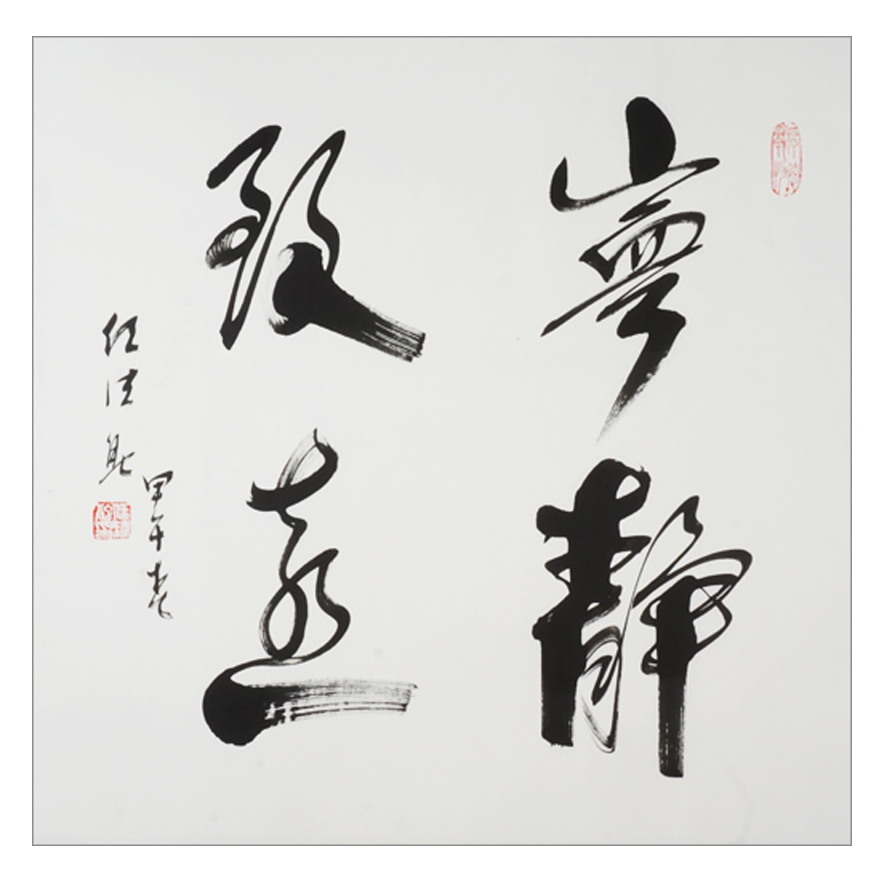 寧靜
致遠
甲午春
任法融